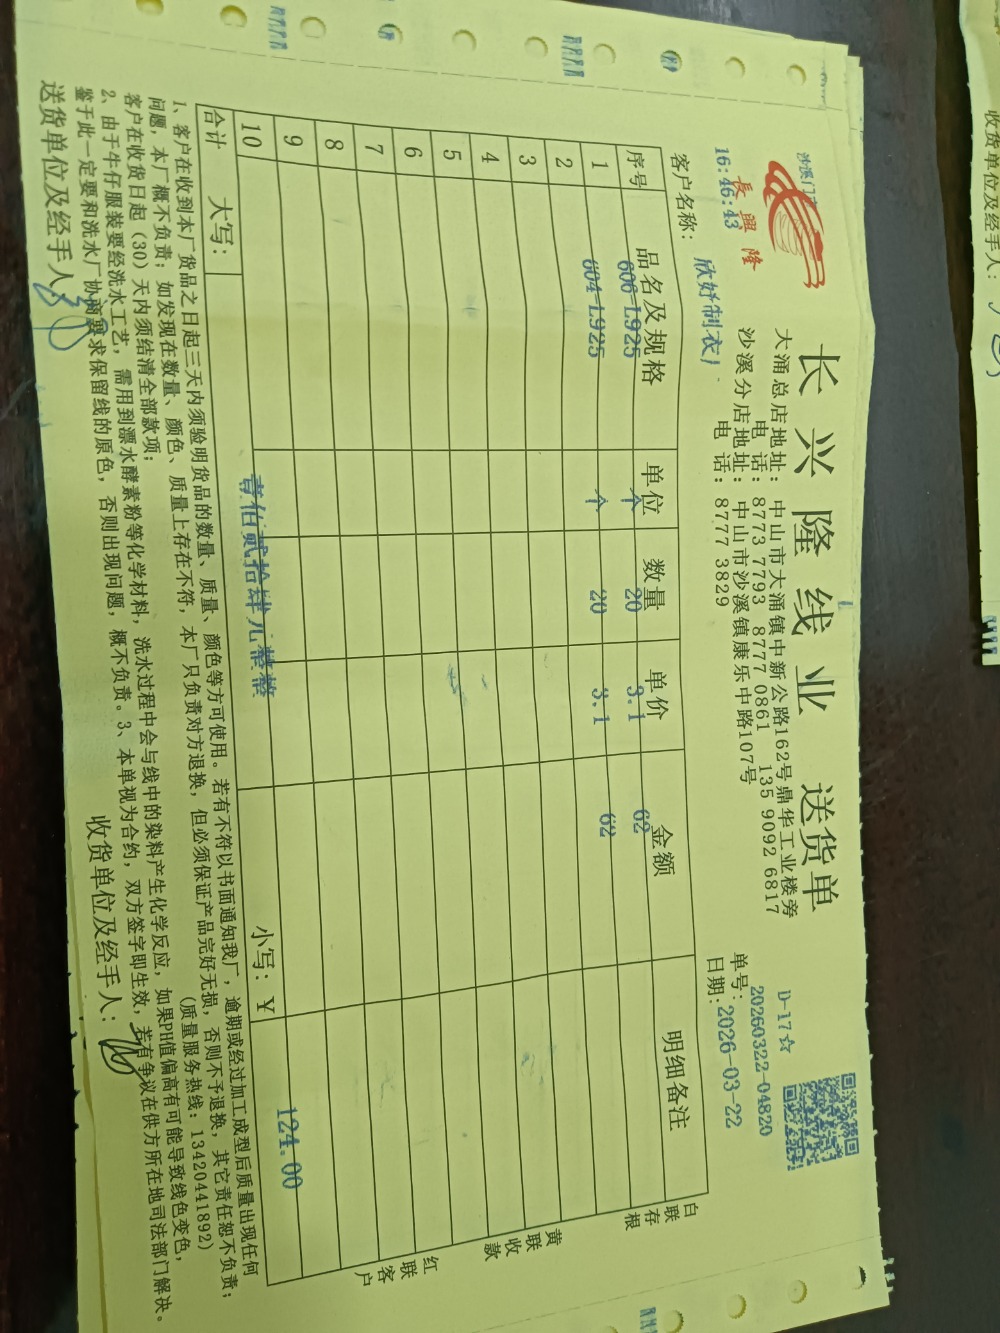 長興隆
长兴隆线业 送货单
大涌总店地址：中山市大涌镇中新公路162号鼎华工业楼旁
电话：8773 7793 8777 0861 135 9092 6817
沙溪分店地址：中山市沙溪镇康乐中路107号
电话：8777 3829
D-17☆
单号：20260322-04820
日期：2026-03-22
16:46:43
客户名称：欣好制衣厂
序号 品名及规格 单位 数量 单价 金额 明细备注
1 606-L925 个 20 3.1 62
2 604-L925 个 20 3.1 62
3
4
5
6
7
8
9
10
合计 大写： 壹佰贰拾肆元整 小写：￥ 124.00
白联存根
黄联收款
红联客户
1、客户在收到本厂货品之日起三天内须验明货品的数量、质量、颜色等方可使用。若有不符以书面通知我厂，逾期或经过加工成型后质量出现任何
问题，本厂概不负责；如发现在数量、颜色、质量上存在不符，本厂只负责对方退换，但必须保证产品完好无损，否则不予退换，其它责任恕不负责；
客户在收货日起（30）天内须结清全部款项；
（质量服务热线：13420441892）
2、由于牛仔服装要经洗水工艺，需用到漂水酵素粉等化学材料，洗水过程中会与线中的染料产生化学反应，如果PH值偏高有可能导致线色变色，
鉴于此一定要和洗水厂协商要求保留线的原色，否则出现问题，概不负责。3、本单视为合约，双方签字即生效，若有争议在供方所在地司法部门解决。
送货单位及经手人：
收货单位及经手人：
收货单位及经手人：